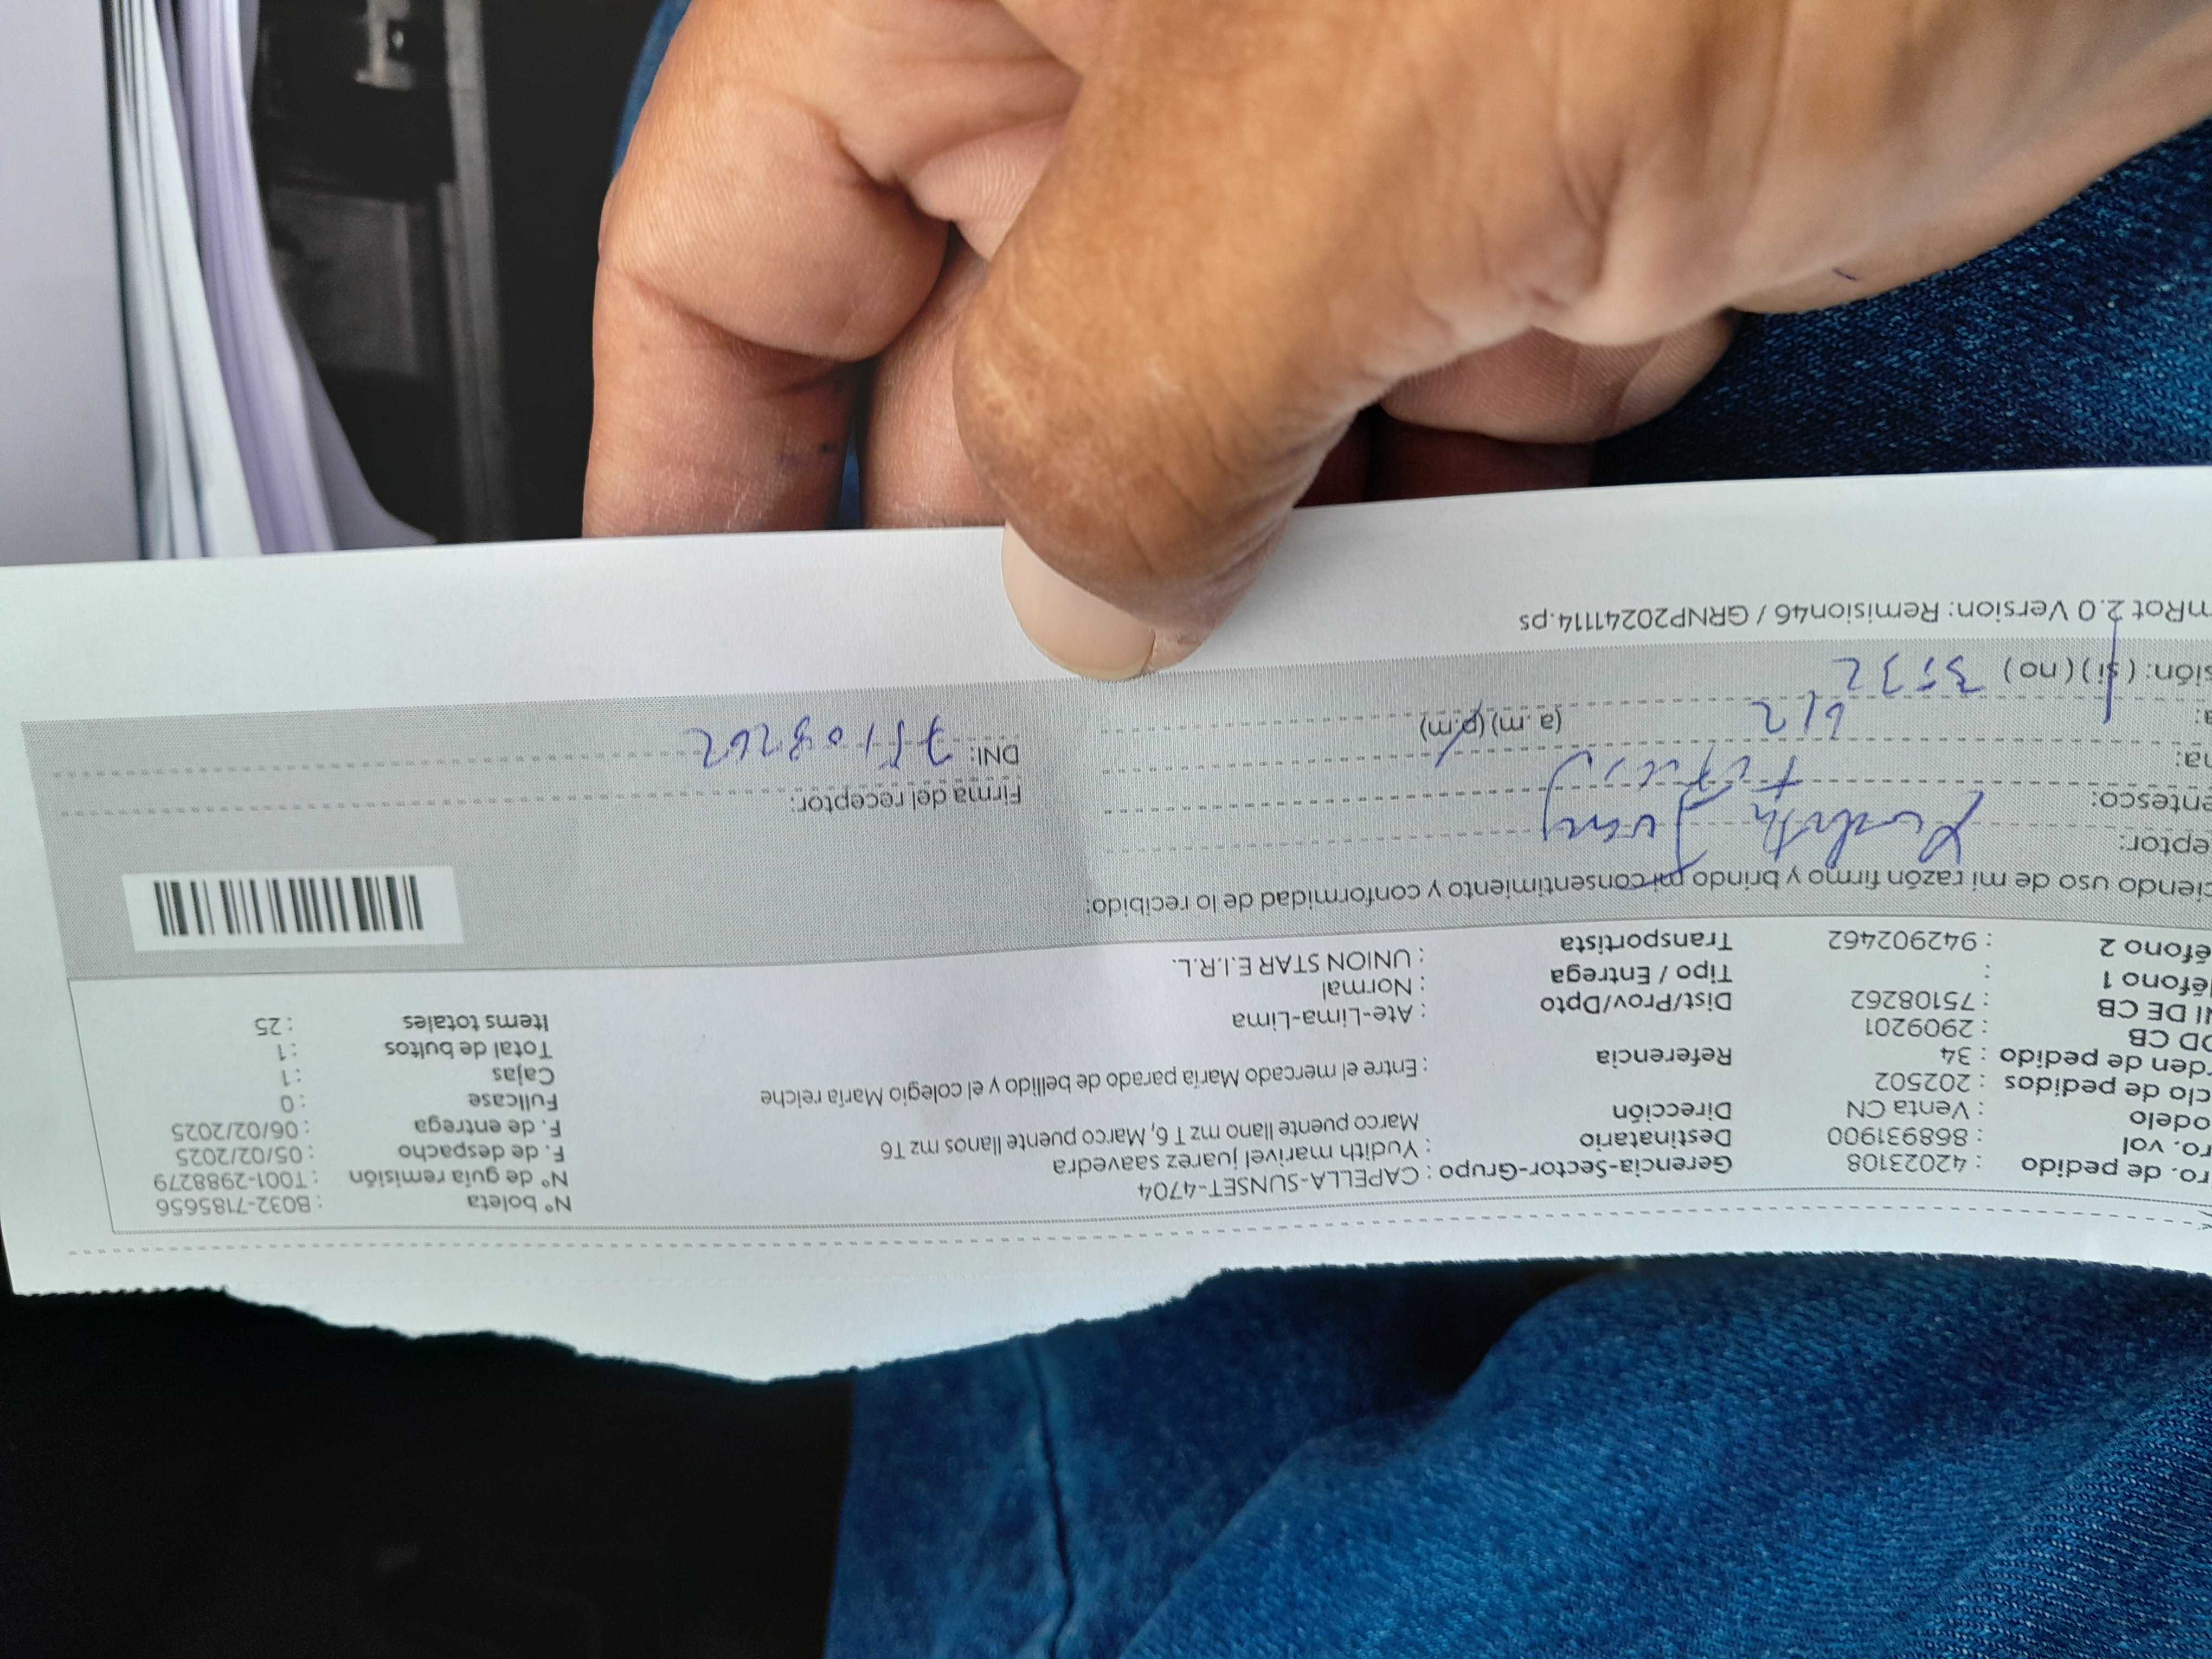 ro. de pedido : 42023108 Gerencia-Sector-Grupo : CAPELLA-SUNSET-4704 N° boleta : B032-7185656
ro. vol : 868931900 Destinatario : Yudith marivel juarez saavedra N° de guía remisión : T001-2988279
odelo : Venta CN Dirección Marco puente llano mz T 6, Marco puente llanos mz T6 F. de despacho : 05/02/2025
clo de pedidos : 202502 F. de entrega : 06/02/2025
rden de pedido : 34 Referencia : Entre el mercado María parado de bellido y el colegio María reiche Fullcase : 0
OD CB : 2909201 Cajas : 1
NI DE CB : 75108262 Dist/Prov/Dpto : Ate-Lima-Lima Total de bultos : 1
léfono 1 : Tipo / Entrega : Normal Items totales : 25
éfono 2 : 942902462 Transportista : UNION STAR E.I.R.L.
ciendo uso de mi razón firmo y brindo mi consentimiento y conformidad de lo recibido:
eptor: Yudith Juarez Firma del receptor:
entesco: Titular
na: 6/2 DNI: 75108262
a: 3:32 (a. m) (p.m)
sión: ( si ) ( no )
mRot 2.0 Version: Remision46 / GRNP20241114.ps